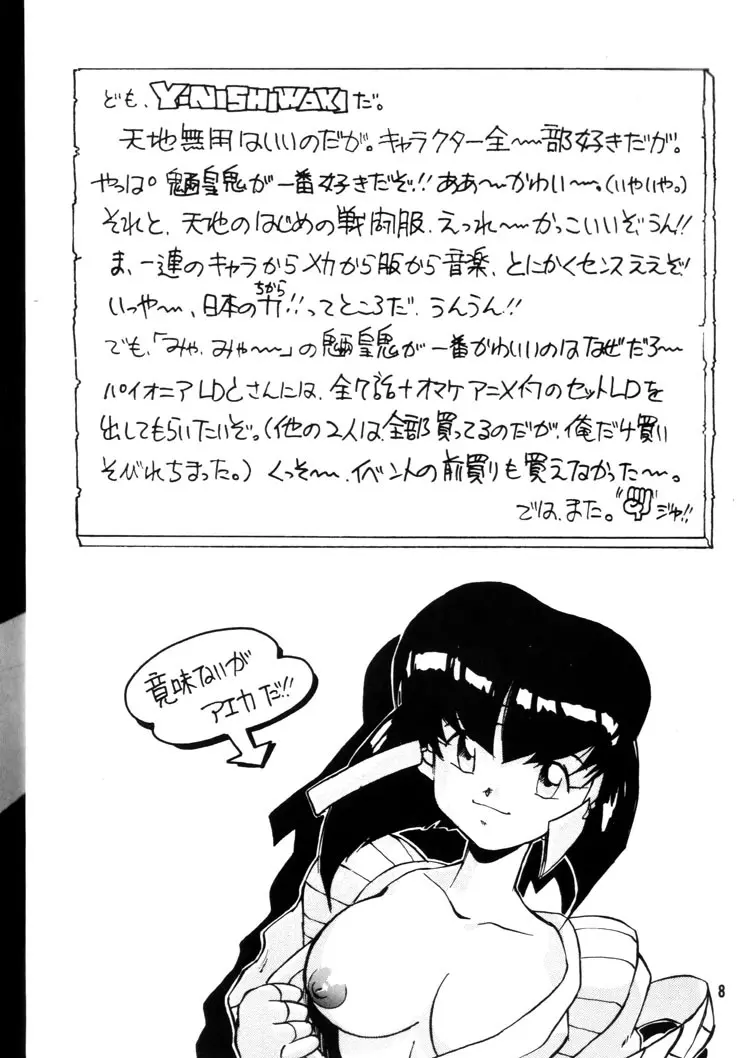 ども、Y・NISHIWAKIだ。
天地無用はいいのだが。キャラクター全〜〜部好きだが。
やっぱ。魎皇鬼が一番好きだぞ!!ああ〜かわい〜。(いやいや。)
それと、天地のはじめの戦闘服、えっれ〜かっこいいぞうん!!
ま、一連のキャラからメカから服から音楽、とにかくセンスええぞ
いっや〜、日本の力!!ってところだ、うんうん!!
ちから
でも、「みゃ、みゃ〜」の魎皇鬼が一番かわいいのはなぜだろ〜
パイオニアLDとさんには、全7話+オマケアニメ付のセットLDを
出してもらいたいぞ。(他の2人は、全部買ってるのだが、俺だけ買い
そびれちまった。)くっそ〜、イベントの前買りも買えなかった〜。
では、また。""ジャ!!
意味ないが
アエカだ!!
8